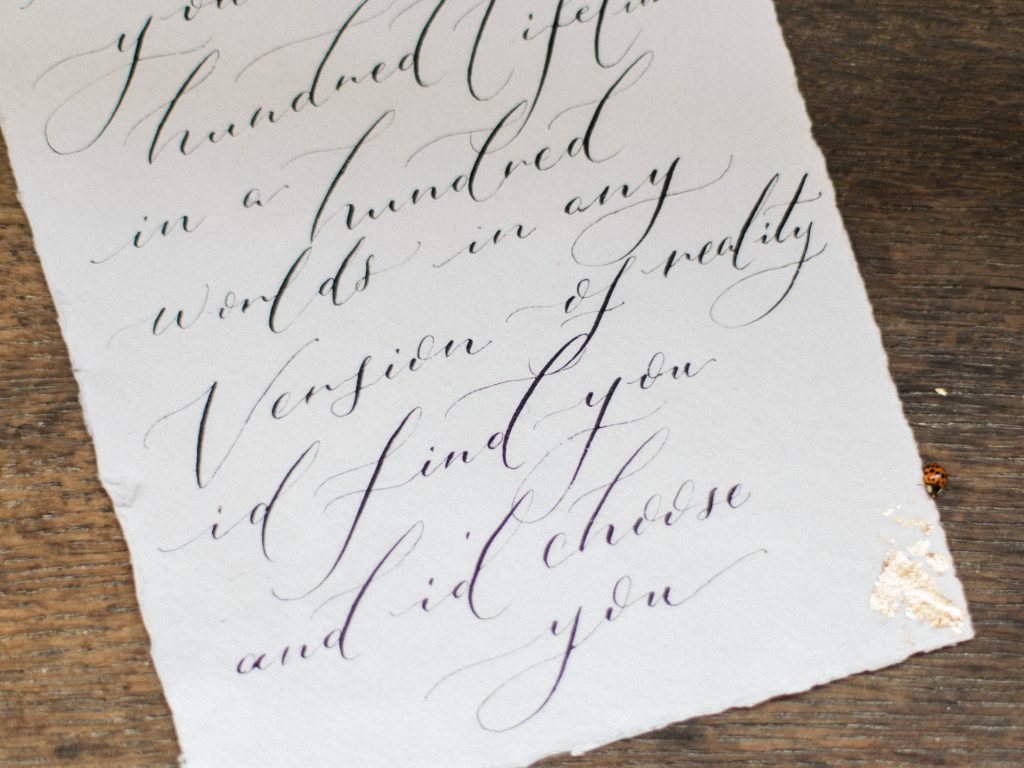 you
hundred lifetim
in a hundred
worlds in any
Version of reality
id find you
and id choose
you